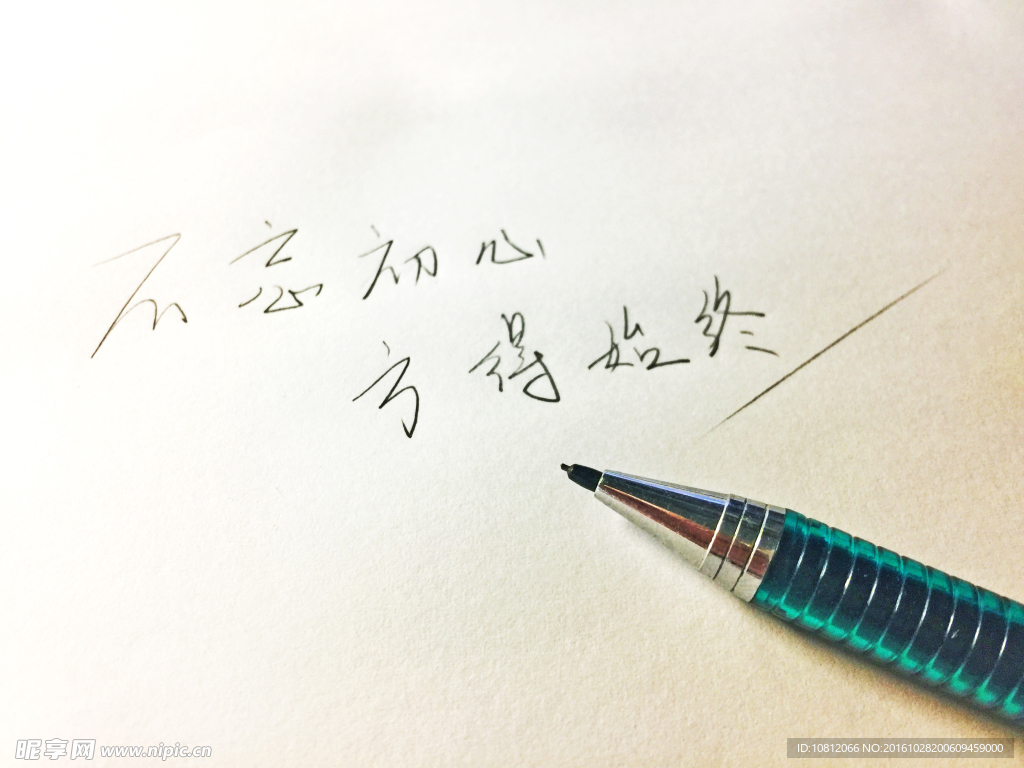 不忘初心
方得始终
昵享网 www.nipic.cn
ID:10812066 NO:20161028200609459000